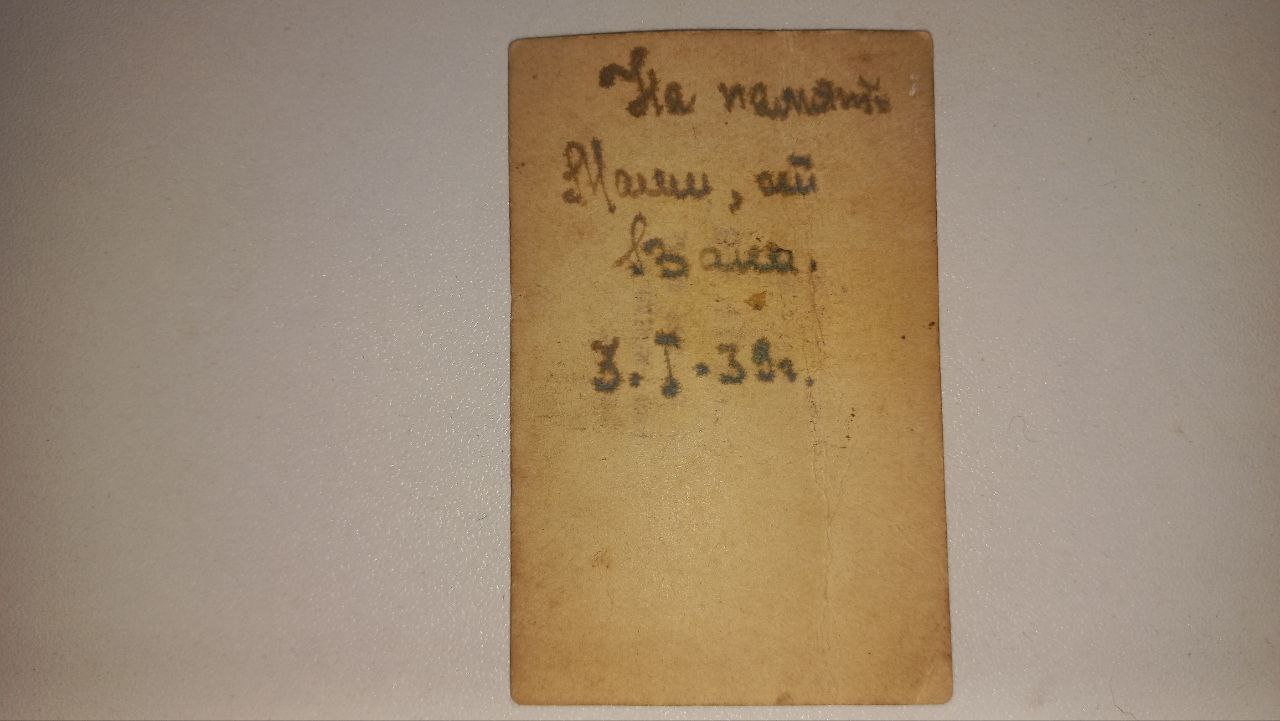 На память
Мани, от
Вани.
3.I.39г.